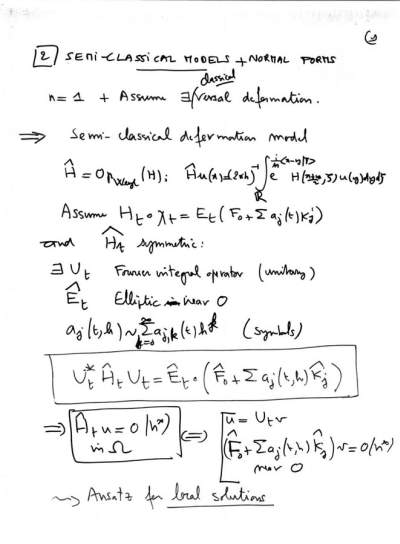 [2] SEMI-CLASSICAL MODELS + NORMAL FORMS
classical
n = 1 + Assume ∃ versal deformation.
⇒ Semi-classical deformation model
Ĥ = Op_Weyl(H); Ĥu(x) = (2πh)⁻¹ ∫ e^{i/h <x-y|ξ>} H(x+y/2, ξ) u(y) dy dξ
Assume H_t ∘ χ_t = E_t (F_0 + Σ a_j(t) K_j)
and Ĥ_t symmetric:
∃ U_t Fourier integral operator (unitary)
Ê_t Elliptic near 0
a_j(t,h) ~ Σ_{k=0}^∞ a_{j,k}(t) h^k (symbols)
U_t* Ĥ_t U_t = Ê_t ∘ (F̂_0 + Σ a_j(t,h) K̂_j)
⇒ Ĥ_t u = 0(h^∞) in Ω ⇔ u = U_t v
(F̂_0 + Σ a_j(t,h) K̂_j) v = 0(h^∞)
near 0
⤳ Ansatz for local solutions